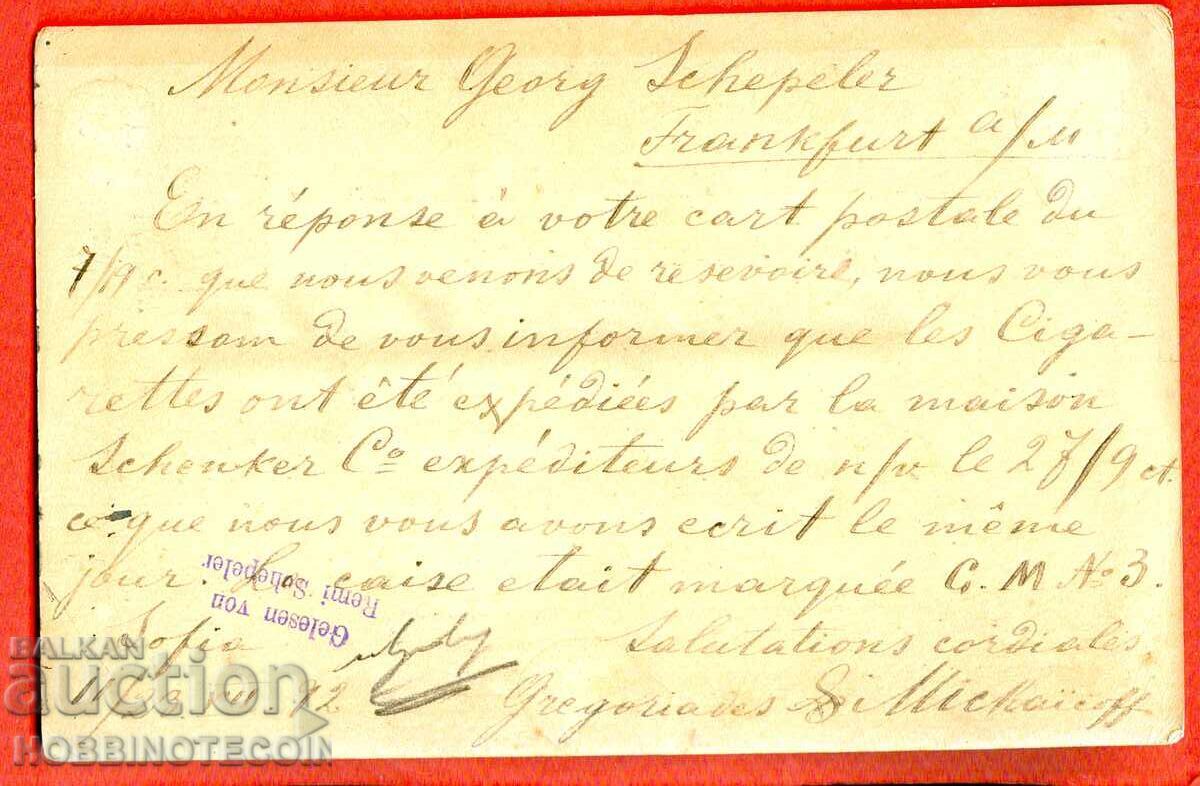 Monsieur Georg Schepeler
Frankfurt a/M
En réponse à votre cart postale du
7/19 c. que nous venons de resevoire, nous vous
pressom de vous informer que les Ciga-
rettes ont été expédiées par la maison
Schenker Co expéditeurs de n/v le 27/9 ct.
ce que nous vous avons ecrit le même
jour. La caise etait marquée G. M No 3.
Gelesen von
Remi Schepeler
Sofia
Salutations cordiales
92
Gregoriades & Michaïcoff
BALKAN
auction
HOBBINOTECOIN